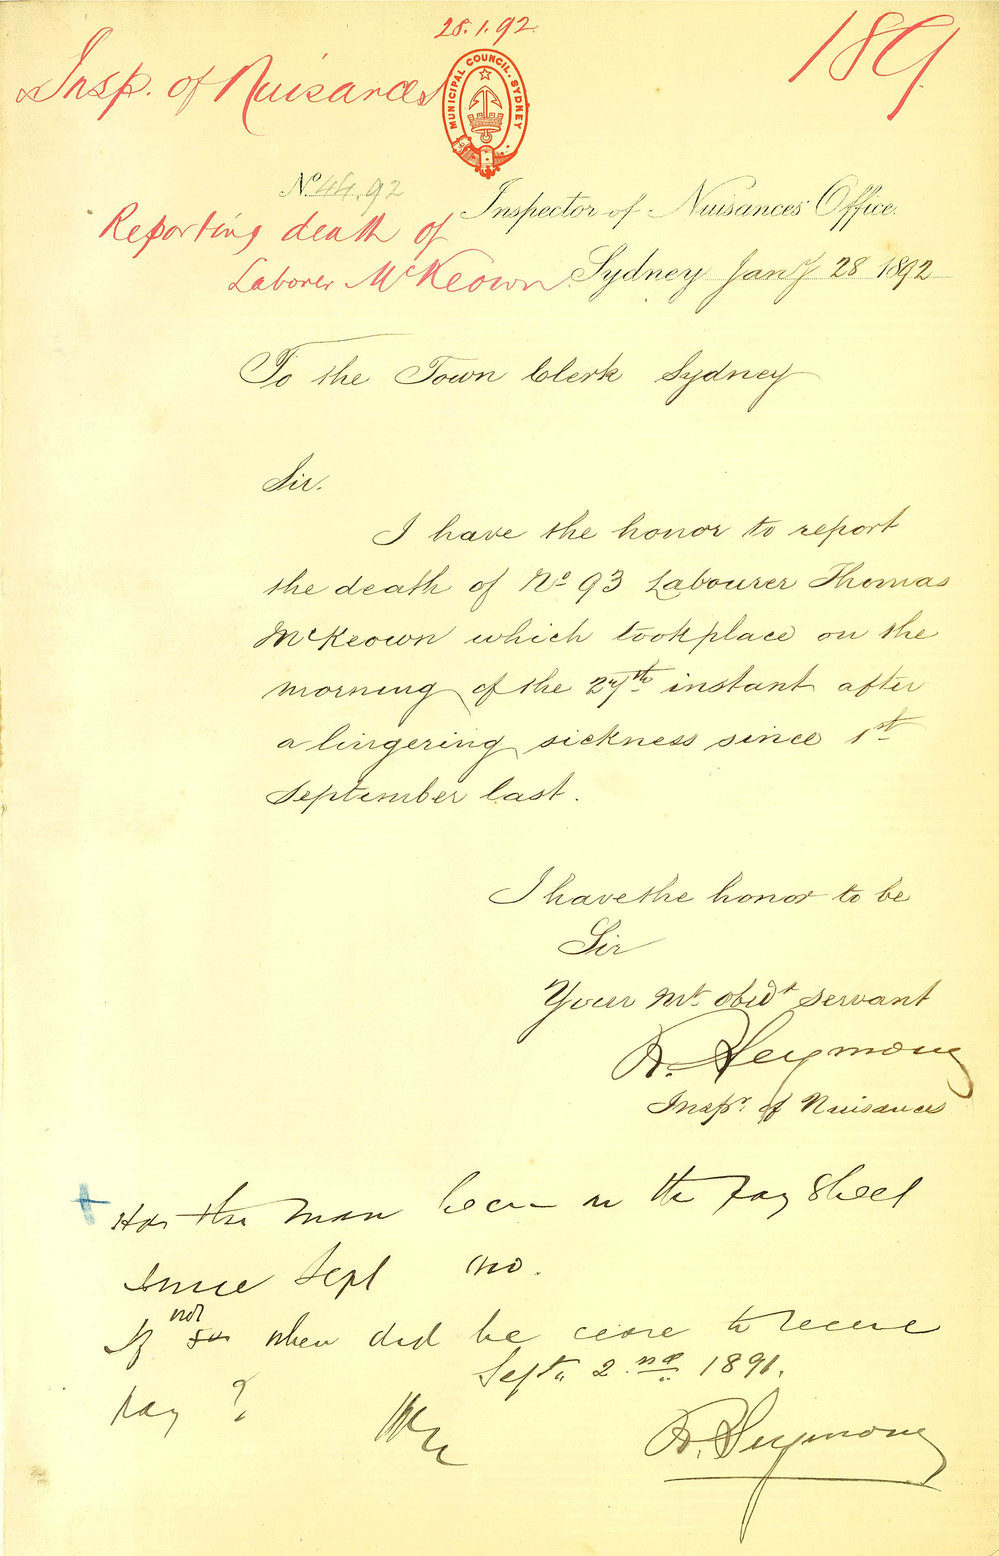 28.1.92.
Insp. of Nuisances
189
MUNICIPAL COUNCIL. SYDNEY
No 44.92
Inspector of Nuisances Office.
Reporting death of
Laborer McKeown
Sydney Jany 28 1892
To the Town Clerk Sydney
Sir.
I have the honor to report
the death of No 93 Labourer Thomas
McKeown which took place on the
morning of the 27th instant after
a lingering sickness since 1st
September last.
I have the honor to be
Sir
Your Mt Obedt Servant
R. Seymour
Inspr. of Nuisances
Has the man been on the pay sheet
since Sept no.
If not so when did he cease to receive
Septr 2nd 1891.
pay ?
R. Seymour